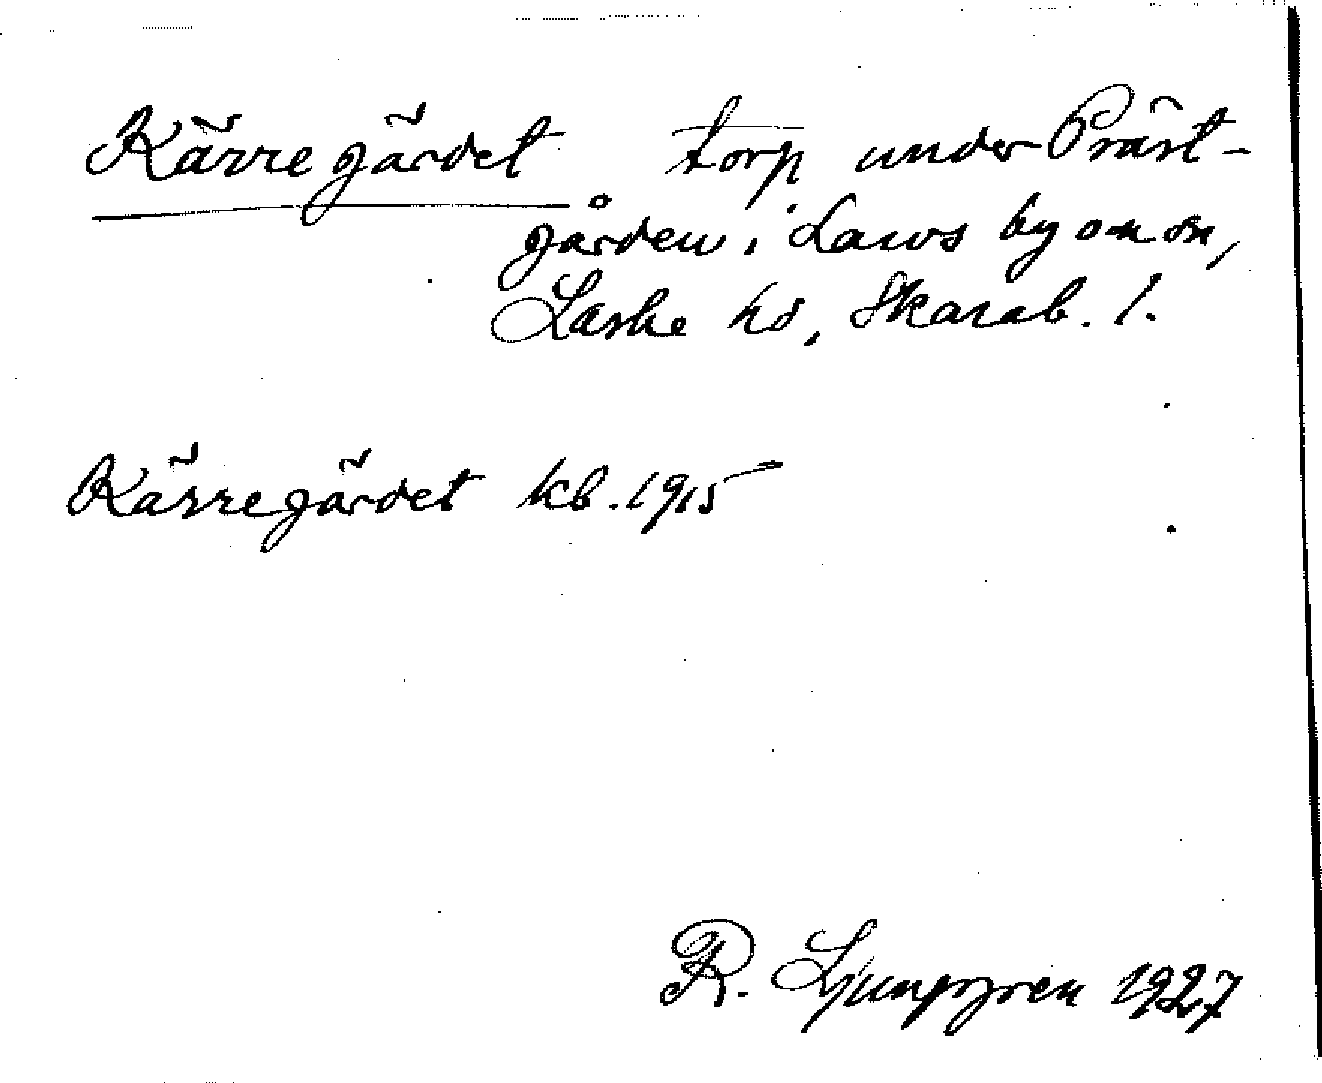 Kärregärdet torp under Präst-
gården i Laws by o-n sn,
Laske hd, Skarab. l.
Kärregärdet kb. 1915
R. Ljunggren 1927